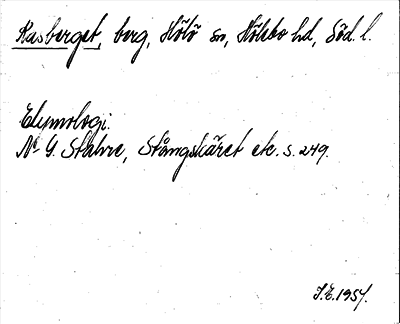 Kasberget, berg, Hölö sn, Hölebo hd, Söd. l.
Etymologi.
N.G. Stahre, Stångskäret etc. s. 249.
I.E. 1957.